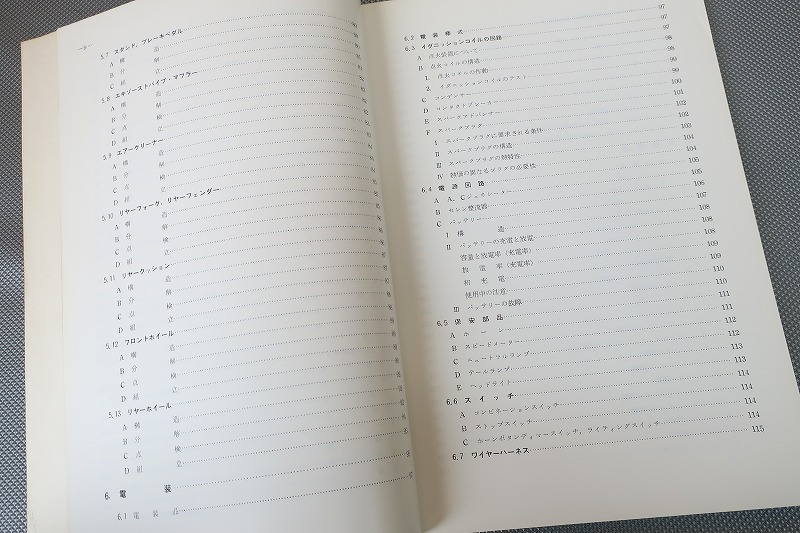 5.7 スタンド，ブレーキペダル
A 構 造
B 分 解
C 組 立
5.8 エキゾーストパイプ，マフラー
A 構 造
B 分 解
C 点 検
D 組 立
5.9 エアークリーナー
A 構 造
B 分 解
C 点 検
D 組 立
5.10 リヤーフォーク，リヤーフェンダー
A 構 造
B 分 解
C 点 検
D 組 立
5.11 リヤークッション
A 構 造
B 分 解
C 点 検
D 組 立
5.12 フロントホイール
A 構 造
B 分 解
C 点 検
D 組 立
5.13 リヤーホイール
A 構 造
B 分 解
C 点 検
D 組 立
6. 電 装
6.1 電 装 品
6.2 電 装 様 式 97
6.3 イグニッションコイルの回路 97
A 点火装置について 97
B 点火コイルの構造 98
1. 点火コイルの作動 98
2. イグニッションコイルのテスト 99
C コンデンサー 99
D コンタクトブレーカー 100
E スパークアドバンサー 101
F スパークプラグ 102
I スパークプラグに要求される条件 102
II スパークプラグの構造 103
III スパークプラグの熱特性 104
IV 熱価の異なるプラグの必要性 104
6.4 電 源 回 路 105
A A．Cジェネレーター 106
B セレン整流器 107
C バッテリー 108
I 構 造 108
II バッテリーの充電と放電 108
容量と放電率（充電率） 109
放 電 率（充電率） 109
初 充 電 110
使用中の注意 110
III バッテリーの故障 111
6.5 保 安 部 品 111
A ホ ー ン 112
B スピードメーター 112
C ニュートラルランプ 113
D テールランプ 113
E ヘッドライト 114
6.6 ス イ ッ チ 114
A コンビネーションスイッチ 114
B ストップスイッチ 114
C ホーンボタンディマースイッチ，ライティングスイッチ 115
6.7 ワイヤーハーネス